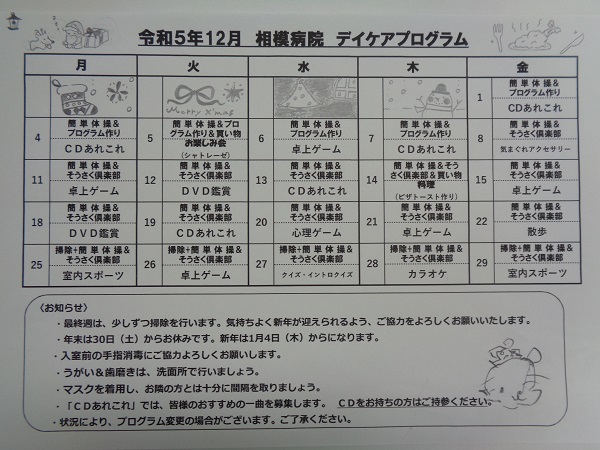 令和5年12月 相模病院 デイケアプログラム
月 火 水 木 金
Merry X'mas
1 簡単体操&プログラム作り
CDあれこれ
4 簡単体操&プログラム作り
CDあれこれ
5 簡単体操&プログラム作り&買い物
お楽しみ会
(シャトレーゼ)
6 簡単体操&プログラム作り
卓上ゲーム
7 簡単体操&プログラム作り
CDあれこれ
8 簡単体操&そうさく倶楽部
気まぐれアクセサリー
11 簡単体操&そうさく倶楽部
卓上ゲーム
12 簡単体操&そうさく倶楽部
DVD鑑賞
13 簡単体操&そうさく倶楽部
CDあれこれ
14 簡単体操&そうさく倶楽部&買い物
料理
(ピザトースト作り)
15 簡単体操&そうさく倶楽部
卓上ゲーム
18 簡単体操&そうさく倶楽部
DVD鑑賞
19 簡単体操&そうさく倶楽部
CDあれこれ
20 簡単体操&そうさく倶楽部
心理ゲーム
21 簡単体操&そうさく倶楽部
卓上ゲーム
22 簡単体操&そうさく倶楽部
散歩
25 掃除+簡単体操&そうさく倶楽部
室内スポーツ
26 掃除+簡単体操&そうさく倶楽部
卓上ゲーム
27 掃除+簡単体操&そうさく倶楽部
クイズ・イントロクイズ
28 掃除+簡単体操&そうさく倶楽部
カラオケ
29 掃除+簡単体操&そうさく倶楽部
室内スポーツ
〈お知らせ〉
・最終週は、少しずつ掃除を行います。気持ちよく新年が迎えられるよう、ご協力をよろしくお願いいたします。
・年末は30日(土)からお休みです。新年は1月4日(木)からになります。
・入室前の手指消毒にご協力よろしくお願いします。
・うがい&歯磨きは、洗面所で行いましょう。
・マスクを着用し、お隣の方とは十分に間隔を取りましょう。
・「CDあれこれ」では、皆様のおすすめの一曲を募集します。 CDをお持ちの方はご持参ください。
・状況により、プログラム変更の場合がございます。ご了承ください。